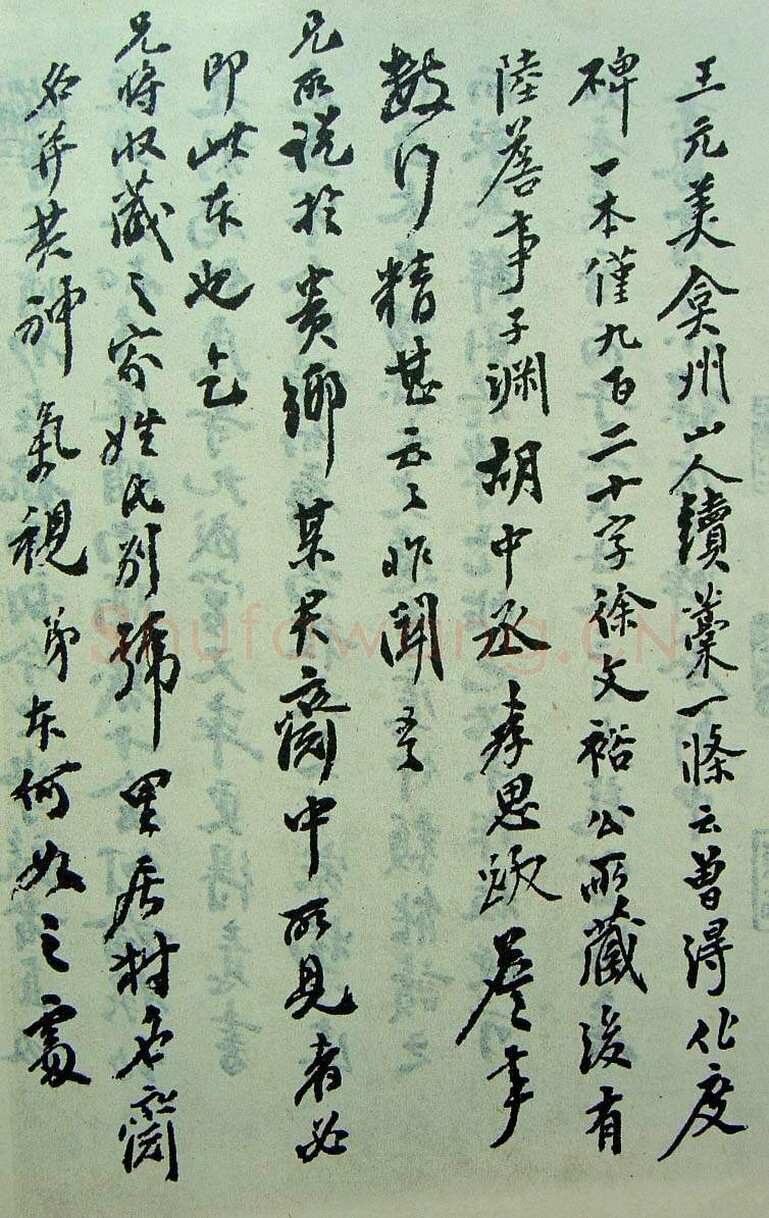 王元美弇州山人續藁一條云曾得化度
碑一本僅九百二十字徐文裕公所藏後有
陸詹事子淵胡中丞孝思跋詹事
數行精甚云云昨聞吾
兄所說於貴鄉某君齋中所見者必
即此本也乞
兄將收藏之家姓氏別號里居村名齋
名并其神氣視弟本何如之處
Shufawang.CN